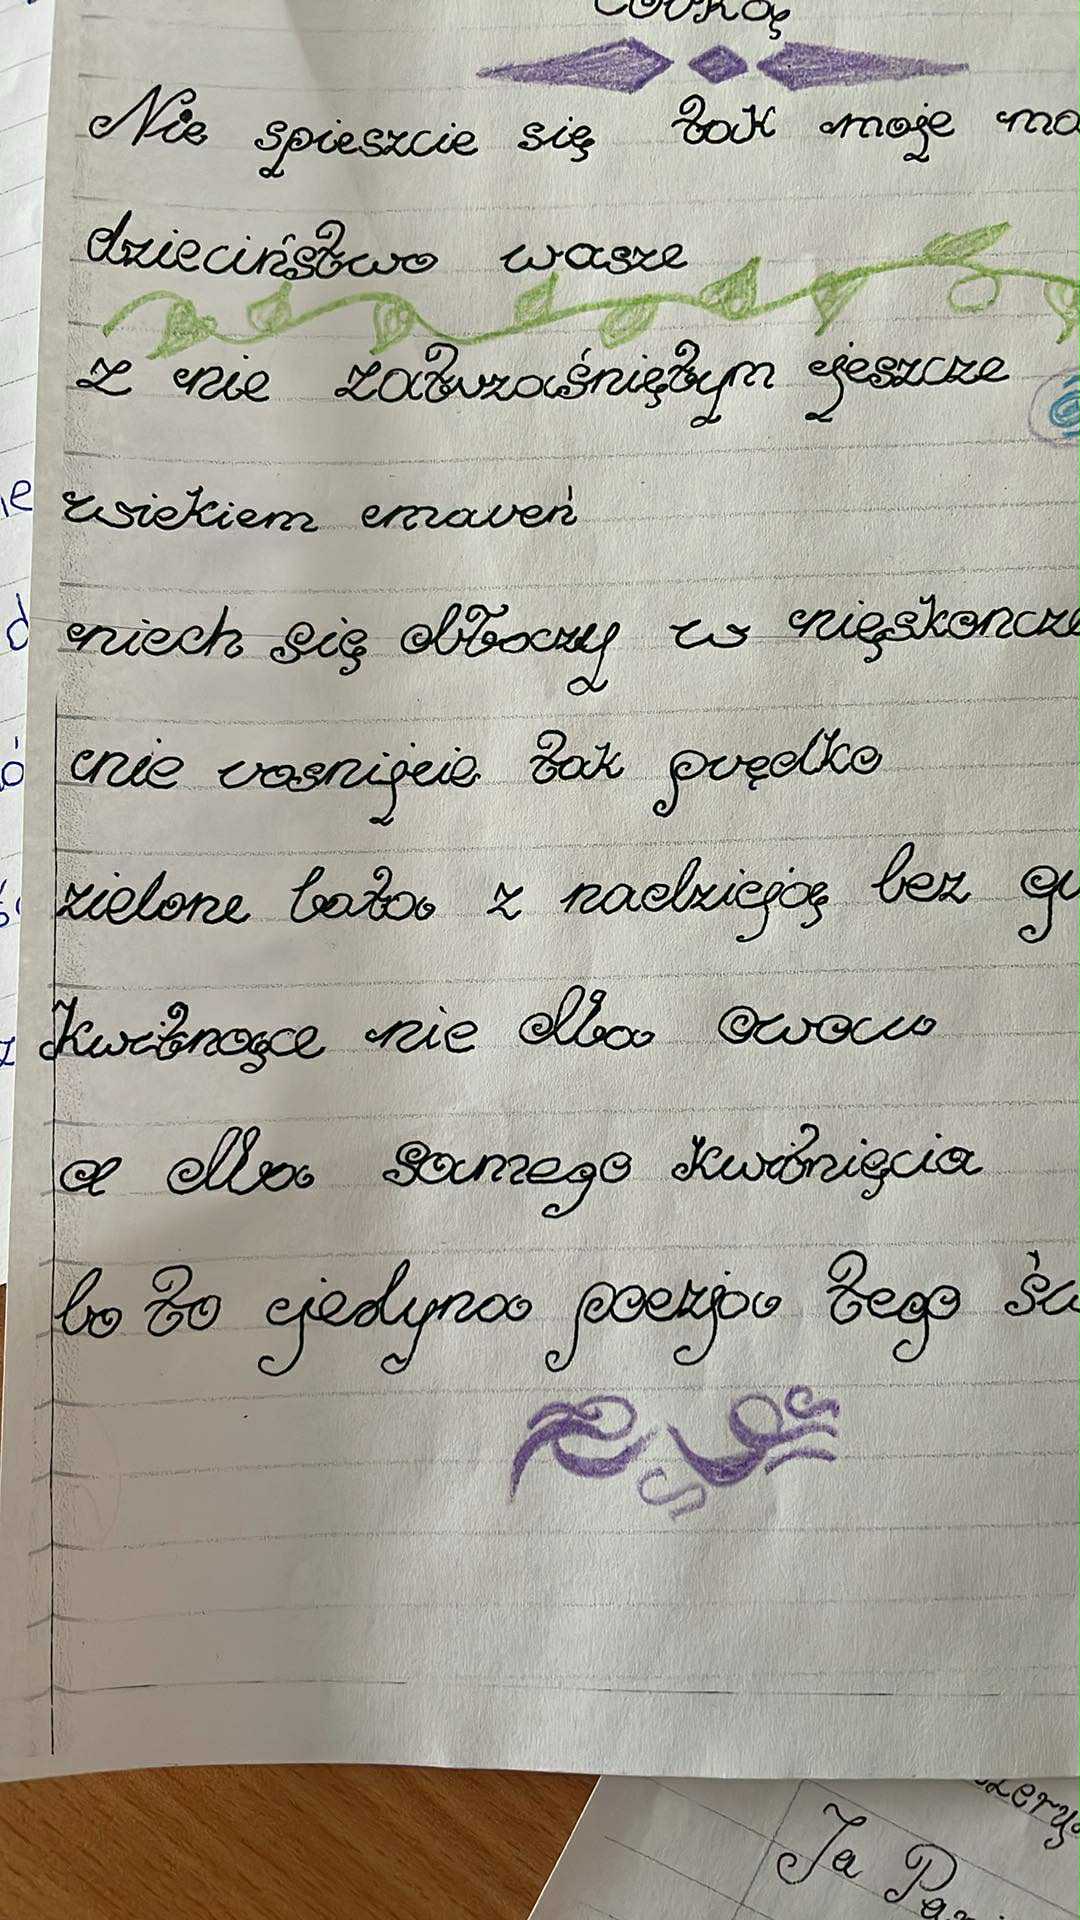 córką
Nie spieszcie się tak moje
dzieciństwo wasze
z nie zatrzaśniętym jeszcze
wiekiem marzeń
niech się obłoczy w nieskończ
nie rośnijcie tak prędko
zielone lata z nadzieją bez
kwitnące nie dla owocu
a dla samego kwitnięcia
bo to jedyna poezja tego
Ja